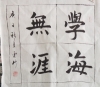 學海
無涯